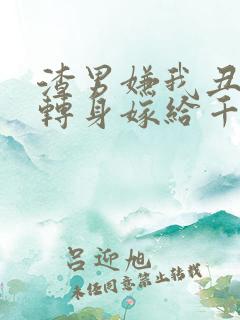 渣男嫌我丑
轉身嫁給千
呂迎旭
未经同意禁止转载